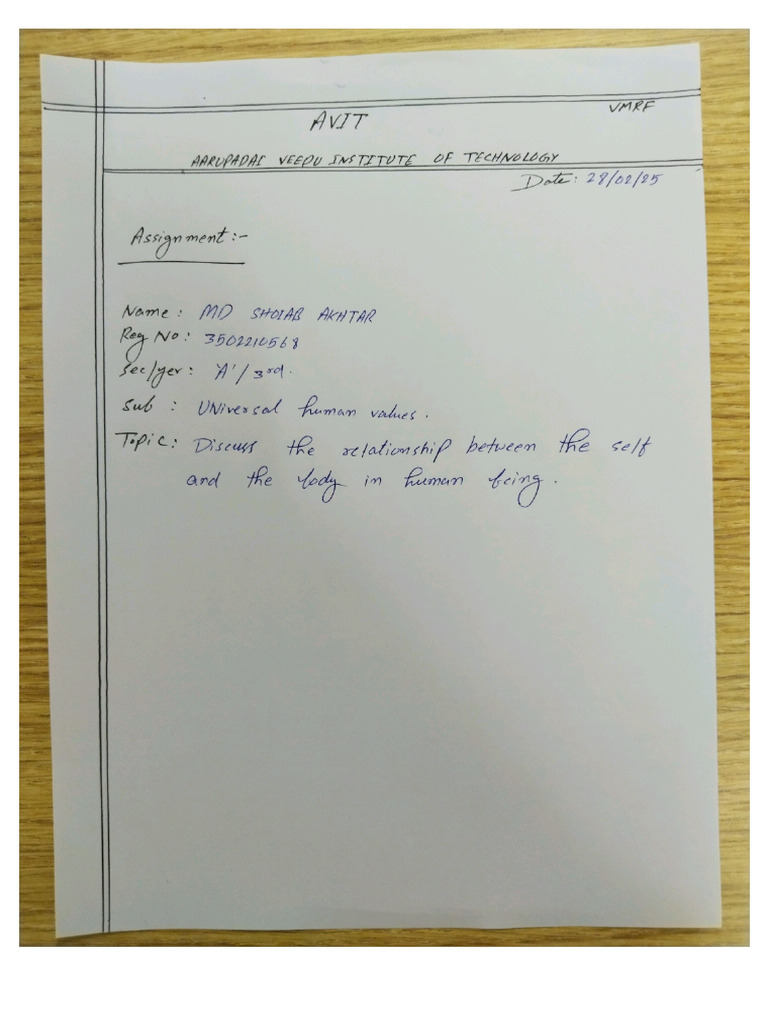 VMRF
AVIT
AARUPADAI VEEDU INSTITUTE OF TECHNOLOGY
Date: 28/02/25
Assignment:-
Name: MD SHOIAB AKHTAR
Reg No: 3502210568
Sec/yer: 'A'/3rd.
Sub : UNiversal human values.
Topic: Discuss the relationship between the self
and the body in human being.